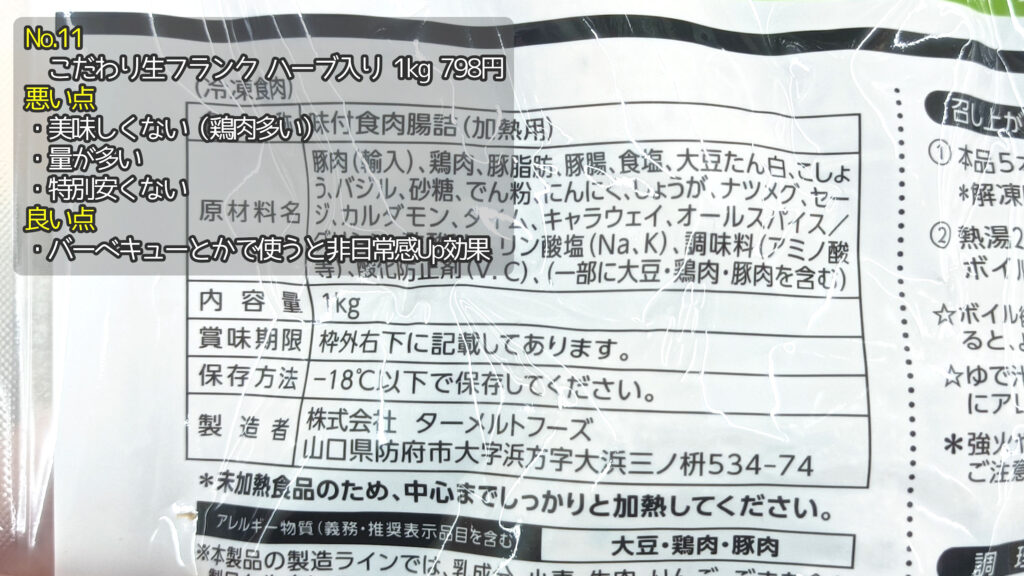 No.11
こだわり生フランク ハーブ入り 1kg 798円
悪い点
・美味しくない（鶏肉多い）
・量が多い
・特別安くない
良い点
・バーベキューとかで使うと非日常感Up効果
(冷凍食肉)
味付食肉腸詰(加熱用)
原材料名
豚肉(輸入)、鶏肉、豚脂肪、豚腸、食塩、大豆たん白、こしょ
う、バジル、砂糖、でん粉、にんにく、しょうが、ナツメグ、セー
ジ、カルダモン、タイム、キャラウェイ、オールスパイス/
リン酸塩(Na、K)、調味料(アミノ酸
等)、酸化防止剤(V.C)、(一部に大豆・鶏肉・豚肉を含む)
内容量 1kg
賞味期限 枠外右下に記載してあります。
保存方法 -18℃以下で保存してください。
製造者 株式会社 ターメルトフーズ
山口県防府市大字浜方字大浜三ノ枡534-74
*未加熱食品のため、中心までしっかりと加熱してください。
アレルギー物質(義務・推奨表示品目を含む)
大豆・鶏肉・豚肉
※本製品の製造ラインでは、乳成分
召し上が
① 本品5本
*解凍
② 熱湯2
ボイル
☆ボイル後
ると、
☆ゆで汁
にアレ
*強火や
ご注意
調